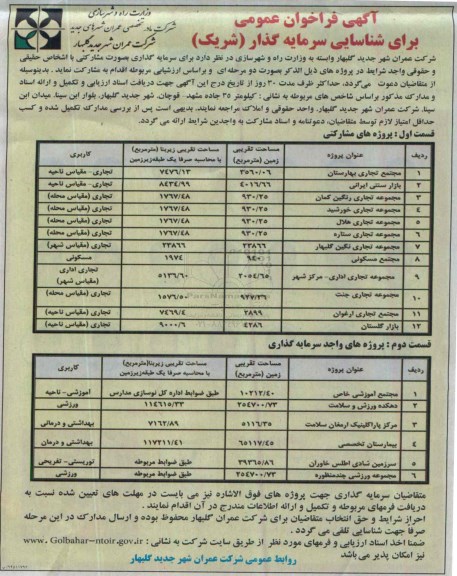 وزارت راه و شهرسازی
شرکت مادر تخصصی عمران شهرهای جدید
شرکت عمران شهر جدید گلبهار
آگهی فراخوان عمومی
برای شناسایی سرمایه گذار (شریک)
شرکت عمران شهر جدید گلبهار وابسته به وزارت راه و شهرسازی در نظر دارد برای سرمایه گذاری بصورت مشارکتی با اشخاص حقیقی
و حقوقی واجد شرایط در پروژه های ذیل الذکر بصورت دو مرحله ای و براساس ارزشیابی مربوطه اقدام به مشارکت نماید. بدینوسیله
از متقاضیان دعوت می‌گردد، حداکثر ظرف مدت ۳۰ روز از تاریخ درج این آگهی جهت دریافت اسناد ارزیابی و تکمیل و ارائه اسناد
و مدارک مذکور براساس شاخص های مربوطه به نشانی : کیلومتر ۳۵ جاده مشهد- قوچان، شهر جدید گلبهار، بلوار ابن سینا، میدان ابن
سینا، شرکت عمران شهر جدید گلبهار، واحد حقوقی و املاک مراجعه نمایند. بدیهی است پس از بررسی مدارک تکمیل شده و کسب
حداقل امتیاز لازم توسط متقاضیان، دعوتنامه و اسناد مشارکت به واجدین شرایط ارائه می گردد.
قسمت اول : پروژه های مشارکتی
ردیف عنوان پروژه مساحت تقریبی زمین (مترمربع) مساحت تقریبی زیربنا (مترمربع) با محاسبه صرفا یک طبقه‌زیرزمین کاربری
۱ مجتمع تجاری بهارستان ۳۵۶۰/۰۶ ۷۴۷۶/۱۳ تجاری-مقیاس ناحیه
۲ بازار سنتی ایرانی ۴۰۱۶/۶۶ ۸۴۳۴/۹۹ تجاری -مقیاس ناحیه
۳ مجموعه تجاری رنگین کمان ۹۳۰/۲۵ ۱۷۶۷/۴۸ تجاری (مقیاس محله)
۴ مجموعه تجاری خورشید ۹۳۰/۲۵ ۱۷۶۷/۴۸ تجاری (مقیاس محله)
۵ مجموعه تجاری هلال ۹۳۰/۲۵ ۱۷۶۷/۴۸ تجاری (مقیاس محله)
۶ مجموعه تجاری ستاره ۹۳۰/۲۵ ۱۷۶۷/۴۸ تجاری (مقیاس محله)
۷ مجموعه تجاری نگین گلبهار ۲۳۸۶۶ ۲۳۸۶۶ تجاری (مقیاس شهر)
۸ مجتمع مسکونی ۹۴۰ ۱۹۷۴ مسکونی
۹ مجموعه تجاری اداری- مرکز شهر ۲۰۵۴/۶۵ ۵۱۳۶/۶۰ تجاری اداری (مقیاس شهر)
۱۰ مجموعه تجاری جنت ۹۷۷/۲۶ ۱۵۷۶/۵۰ تجاری (مقیاس محله)
۱۱ مجتمع تجاری ارغوان ۲۸۹۹ ۷۴۶۹/۴ تجاری (مقیاس ناحیه)
۱۲ بازار گلستان ۴۲۸۶ ۹۰۰۰/۶ تجاری (مقیاس ناحیه)
قسمت دوم : پروژه های واجد سرمایه گذاری
ردیف عنوان پروژه مساحت تقریبی زمین (مترمربع) مساحت تقریبی زیربنا(مترمربع) با محاسبه صرفا یک طبقه‌زیرزمین کاربری
۱ مجتمع آموزشی خاص ۱۰۲۱۲/۴۰ طبق ضوابط اداره کل نوسازی مدارس آموزشی- ناحیه
۲ دهکده ورزش و سلامت ۲۵۴۷۰۰/۷۳ ۱۱۴۶۱۵/۳۳ ورزشی
۳ مرکز پاراکلینیک ارمغان سلامت ۵۱۱۶/۳۵ ۷۱۶۲/۸۹ بهداشتی و درمانی
۴ بیمارستان تخصصی ۶۵۱۱۷/۴۵ ۱۱۷۲۱۱/۴۱ بهداشتی و درمان
۵ سرزمین شادی اطلس خاوران ۳۹۳۶۵/۸۶ طبق ضوابط مربوطه توریستی- تفریحی
۶ مجموعه ورزشی چندمنظوره ۲۵۴۷۰۰/۷۳ طبق ضوابط مربوطه ورزشی
متقاضیان سرمایه گذاری جهت پروژه های فوق الاشاره نیز می بایست در مهلت های تعیین شده نسبت به
دریافت فرمهای مربوطه و تکمیل و ارائه اطلاعات مندرج در آن اقدام نمایند .
احراز شرایط و حق انتخاب متقاضیان برای شرکت عمران گلبهار محفوظ بوده و ارسال مدارک در این مرحله
صرفاً جهت شناسایی تلقی می گردد .
ضمنا اخذ اسناد ارزیابی و فرمهای مورد نظر از طریق سایت شرکت به نشانی : www. Golbahar-ntoir.gov.ir
نیز امکان پذیر می باشد
روابط عمومی شرکت عمران شهر جدید گلبهار